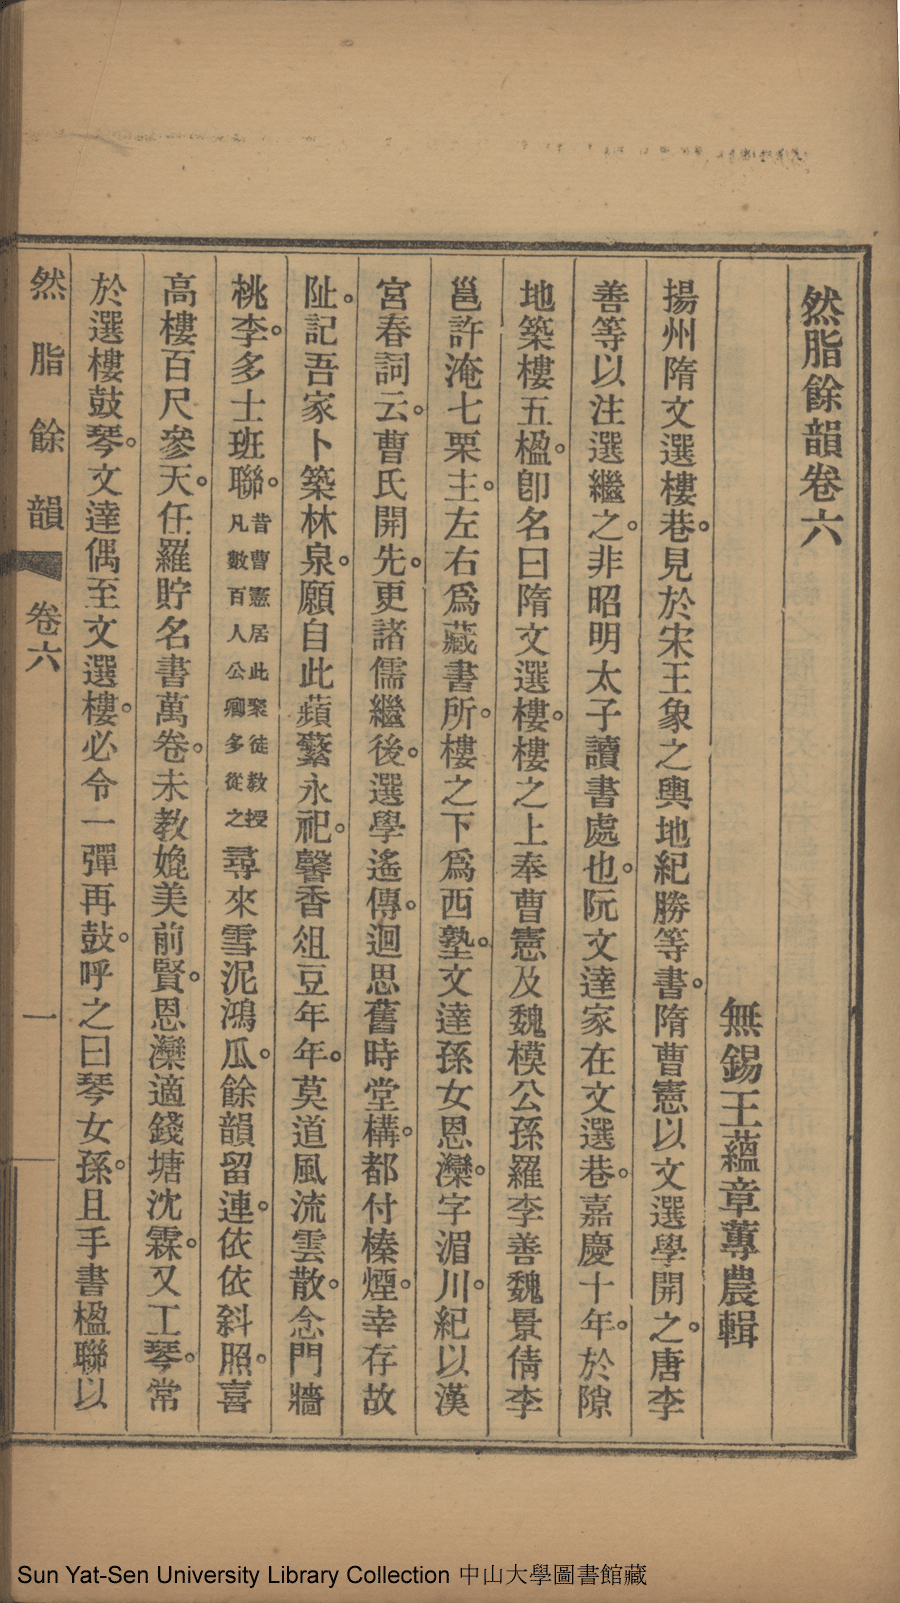 然脂餘韻卷六
無錫王蘊章蓴農輯
揚州隋文選樓巷。見於宋王象之輿地紀勝等書。隋曹憲以文選學開之。唐李
善等以注選繼之。非昭明太子讀書處也。阮文達家在文選巷。嘉慶十年。於隙
地築樓五楹。卽名曰隋文選樓。樓之上奉曹憲及魏模公孫羅李善魏景倩李
邕許淹七栗主。左右爲藏書所。樓之下爲西塾。文達孫女恩灤。字湄川。紀以漢
宮春詞云。曹氏開先。更諸儒繼後。選學遙傳。迴思舊時堂構。都付榛煙。幸存故
阯。記吾家卜築林泉。願自此蘋蘩永祀。馨香俎豆年年。莫道風流雲散。念門牆
桃李。多士班聯。昔曹憲居此聚徒教授凡數百人公卿多從之尋來雪泥鴻瓜。餘韻留連。依依斜照。喜
高樓百尺參天。任羅貯名書萬卷。未教媿美前賢。恩灤適錢塘沈霖。又工琴。常
於選樓鼓琴。文達偶至文選樓。必令一彈再鼓。呼之曰琴女孫。且手書楹聯以
然脂餘韻 卷六 一
Sun Yat-Sen University Library Collection 中山大學圖書館藏